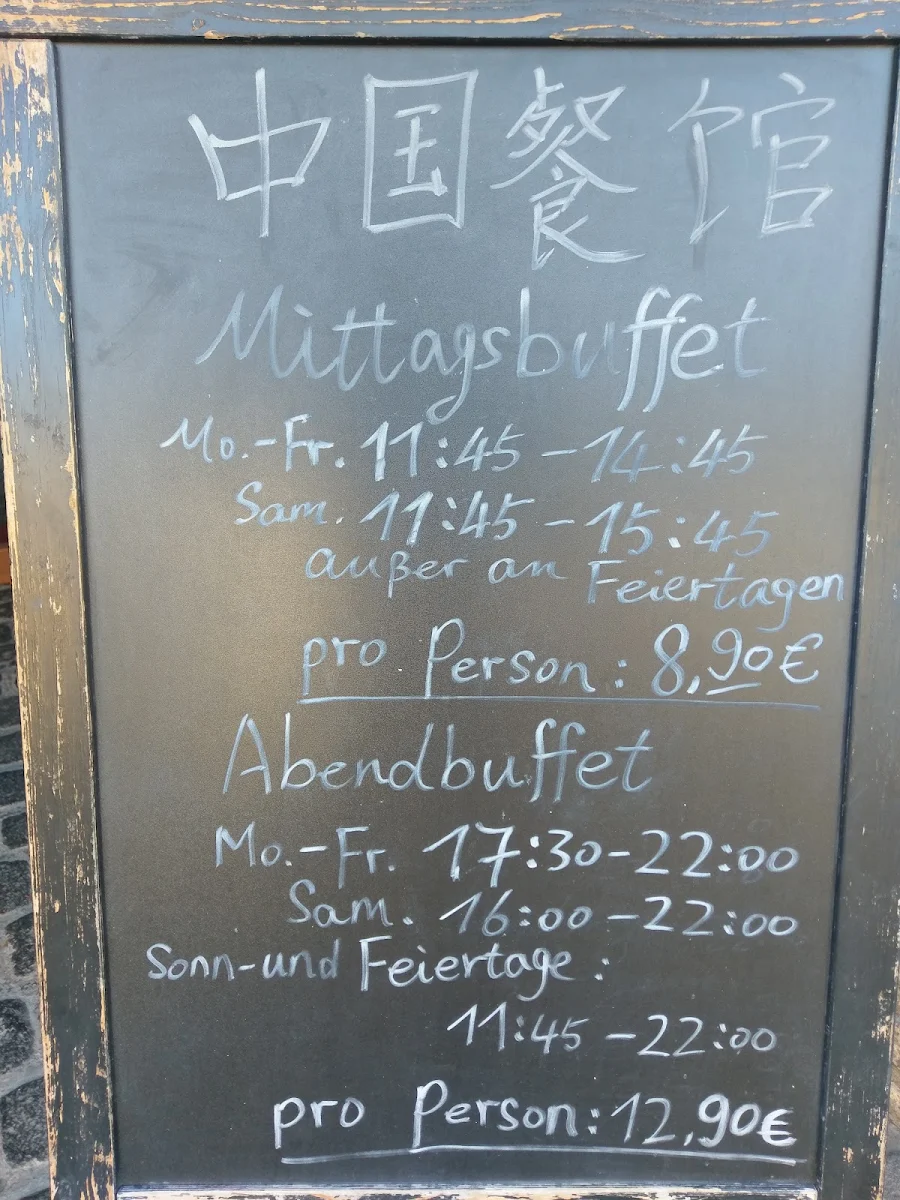 中国餐馆
Mittagsbuffet
Mo.-Fr. 11:45 - 14:45
Sam. 11:45 - 15:45
außer an Feiertagen
pro Person: 8,90€
Abendbuffet
Mo.-Fr. 17:30-22:00
Sam. 16:00 - 22:00
Sonn-und Feiertage:
11:45 - 22:00
pro Person: 12,90€